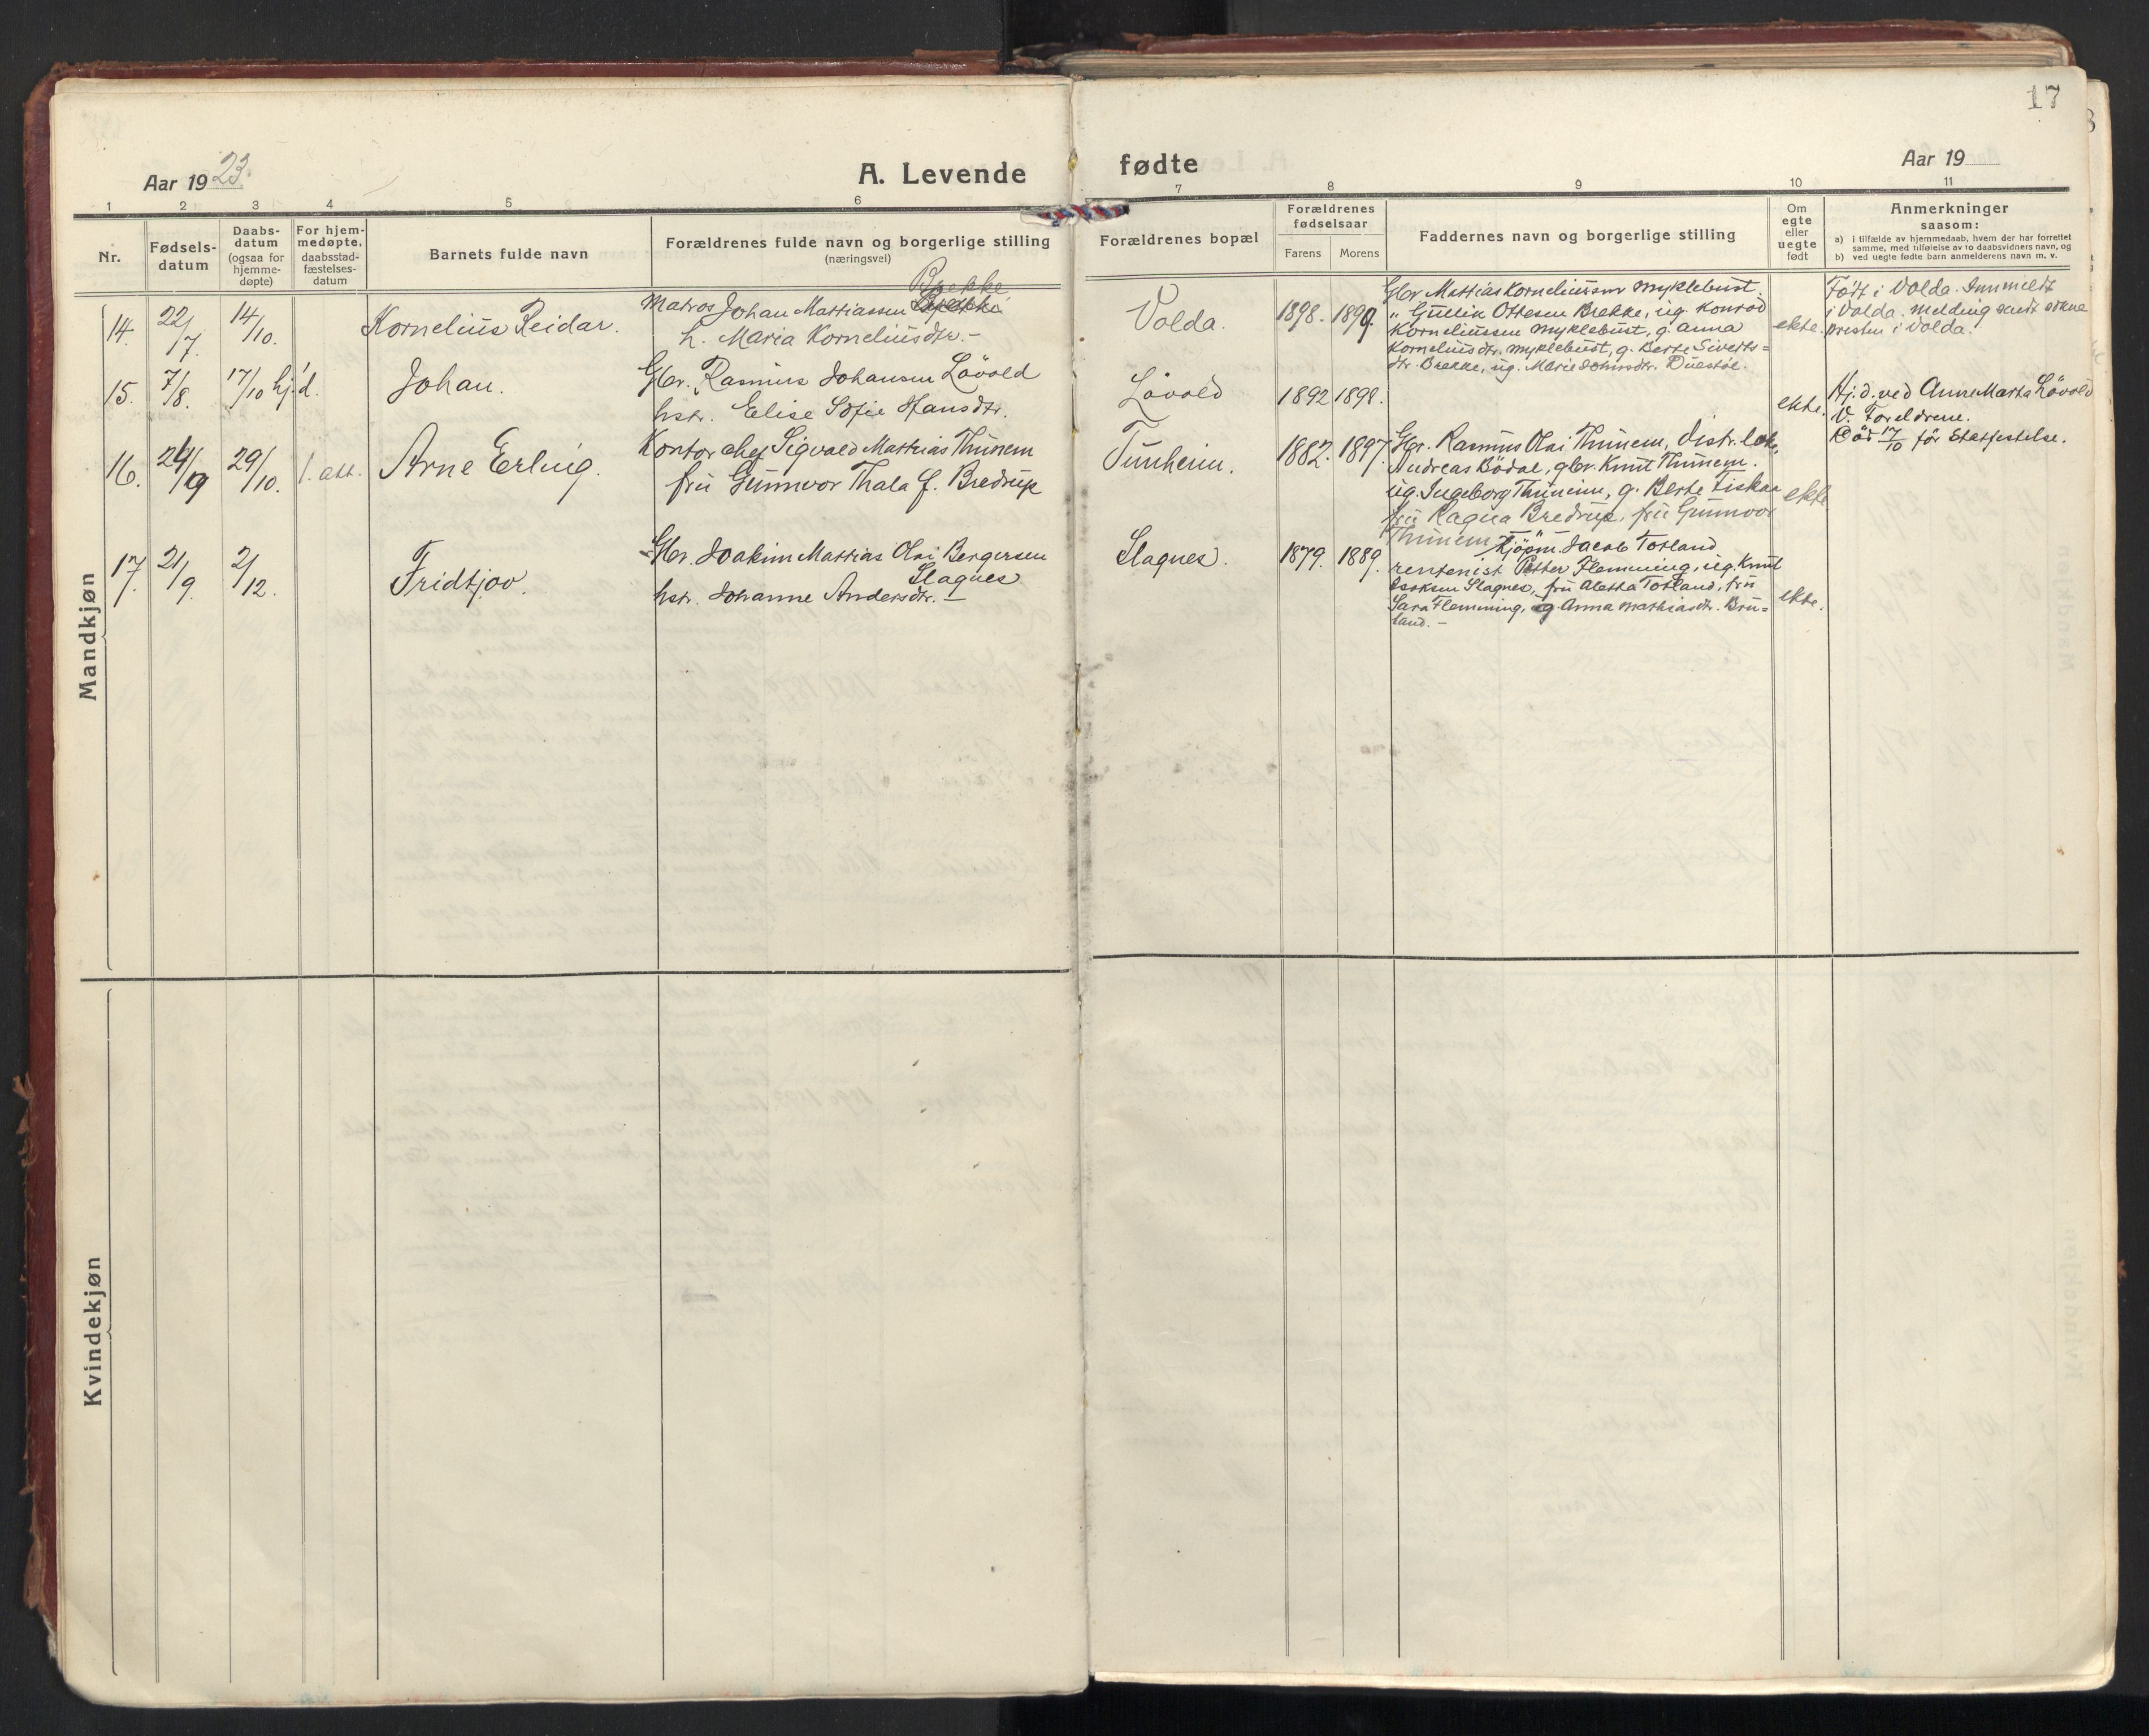 17
Aar 1923.
A. Levende
fødte
Aar 19
1 2 3 4 5 6 7 8 9 10 11
Nr.
Fødsels-
datum
Daabs-
datum
(ogsaa for
hjemme-
døpte)
For hjem-
medøpte,
daabsstad-
fæstelses-
datum
Barnets fulde navn
Forældrenes fulde navn og borgerlige stilling
(næringsvei)
Forældrenes bopæl
Forældrenes
fødselsaar
Farens Morens
Faddernes navn og borgerlige stilling
Om
egte
eller
uegte
født
Anmerkninger
saasom:
a) i tilfælde av hjemmedaab, hvem der har forrettet
samme, med tilføielse av to daabsvidners navn, og
b) ved uegte fødte barn anmelderens navn m. v.
Mandkjøn
14. 22/7. 14/10. Kornelius Reidar.
Brekke
Matros Johan Mattiassen
h. Maria Korneliusdtr. -
Volda. 1898. 1899.
Gbr Mattias Korneliussen Myklebust.
" Gullik Ottesen Brekke, ug. Konrad
Korneliussen Myklebust, g. Anna
Korneliusdtr. Myklebust, g. Berte Siverts=
dtr. Brekke, ug. Marie Johnsdtr. Duestøl.
ekte.
Født i Volda. Innmeldt
i Volda. Melding sendt sokne
presten i Volda.
15. 7/8. 17/10 hj.d. Johan.
Gbr. Rasmus Johansen Løvold
hstr. Elise Sofie Hansdtr.
Løvold 1892 1898.
ekte.
Hj.d. ved Anne Marta Løvold
V. Foreldrene.
Død 17/10 før Statfestelse.
16. 24/9 29/10. 1. att. Arne Erling.
Kontorchef Sigvald Mattias Thunem
fru Gunnvor Thala f. Bredrup
Tunheim. 1882. 1897.
Gbr. Rasmus Olai Thunem, distr.læk.
Andreas Bødal, gbr. Knut Thunem.
ug. Ingeborg Thunem, g. Berte Fiskaa
fru Ragna Bredrup, fru Gunnvor
Thunem
ekte
17. 21/9. 2/12. Fridtjov.
Gbr. Joakim Mattias Olai Bergersen
Slagnes
hstr. Johanne Andersdtr. -
Slagnes. 1879. 1889.
Kjøpm. Jacob Totland
rentenist Petter Flemming, ug. Knut
Slagnes, fru Aletha Totland, fru
Sara Flemming, g. Anna Mathiasdtr. Bru=
land. -
ekte.
Kvindekjøn